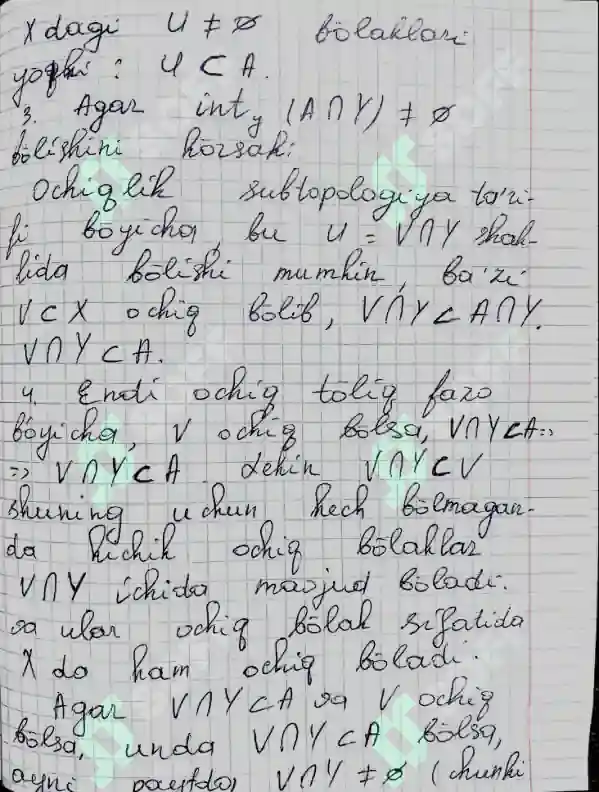 X dagi U ≠ ∅ bo'laklari
yo'qki : U ⊂ A.
3. Agar int_y (A∩Y) ≠ ∅
bo'lishini ko'rsak:
Ochiqlik subtopologiya ta'ri-
fi bo'yicha, bu U = V∩Y shak-
lida bo'lishi mumkin, ba'zi
V⊂X ochiq bo'lib, V∩Y⊂A∩Y.
V∩Y⊂A.
4. Endi ochiq to'liq fazo
bo'yicha, V ochiq bo'lsa, V∩Y⊂A=>
=> V∩Y⊂A lekin V∩Y⊂V
shuning uchun hech bo'lmagan-
da kichik ochiq bo'laklar
V∩Y ichida mavjud bo'ladi.
va ular ochiq bo'lak sifatida
X da ham ochiq bo'ladi.
Agar V∩Y⊂A va V ochiq
bo'lsa, unda V∩Y⊂A bo'lsa,
ayni paytda, V∩Y≠∅ (chunki